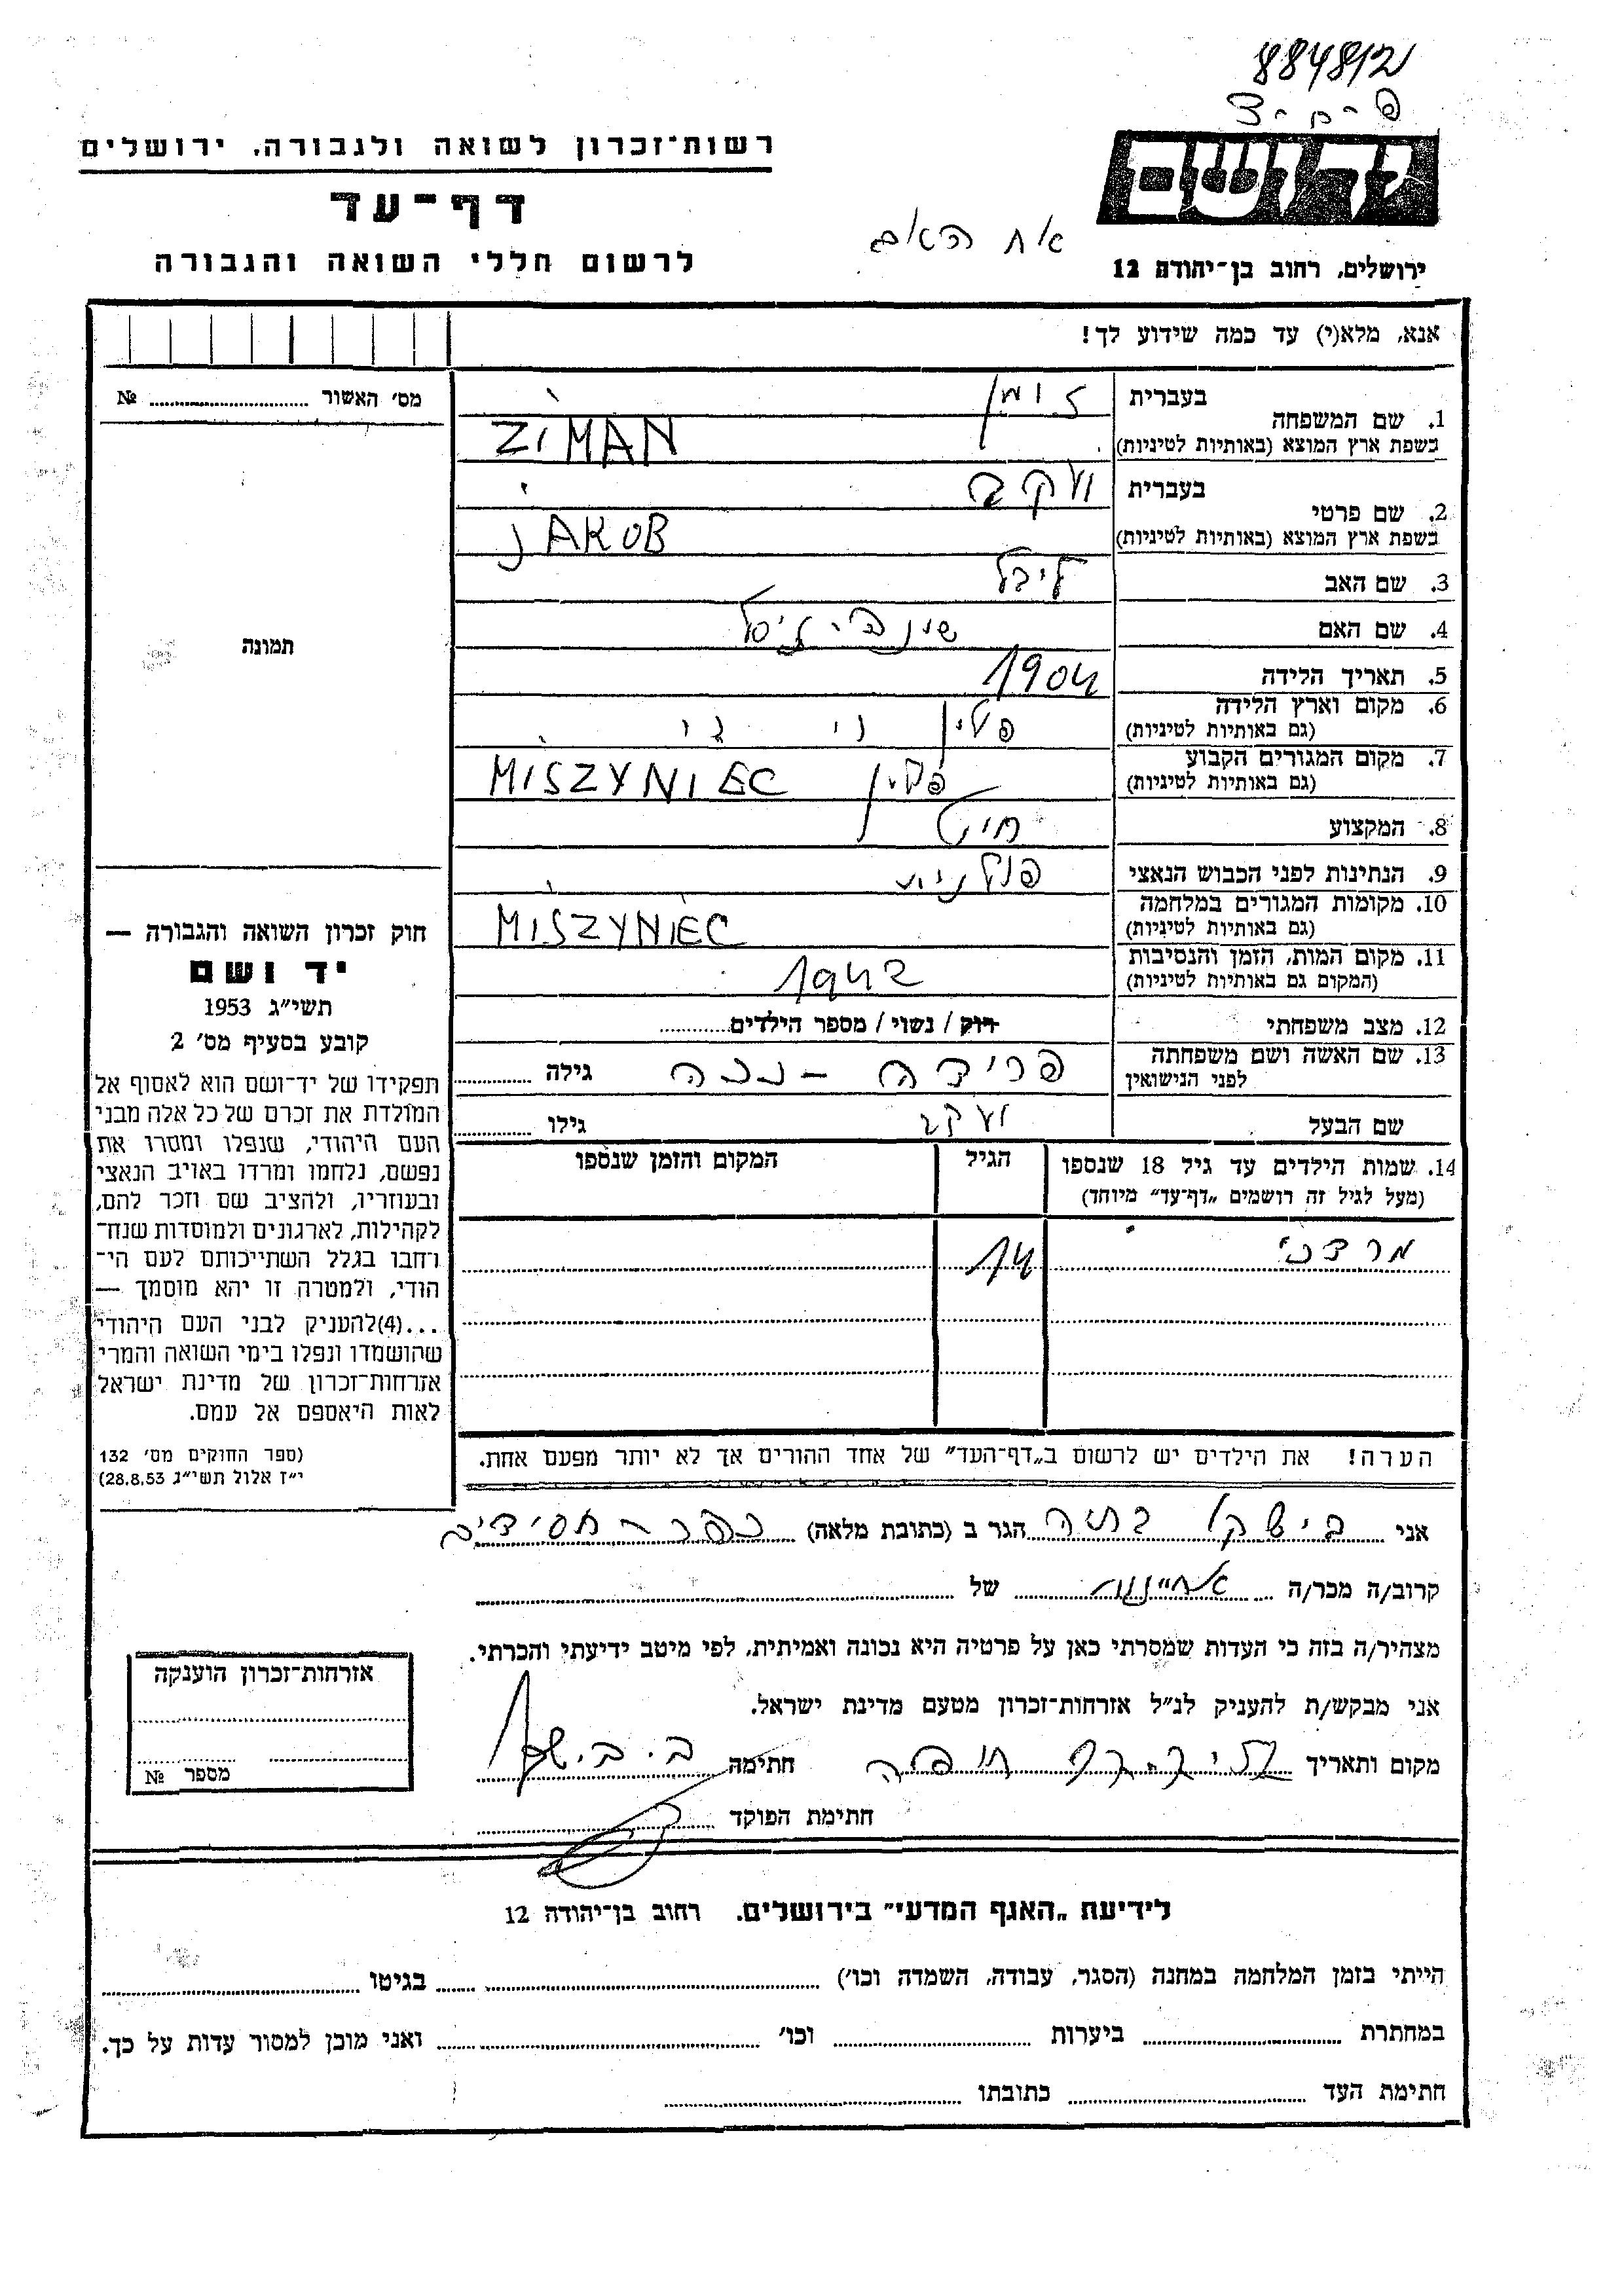 884812
רשות־זכרון לשואה ולגבורה, ירושלים
דף־עד
לרשום חללי השואה והגבורה
יד ושם
אח האם
ירושלים, רחוב בן־יהודה 12
אנא, מלא(י) עד כמה שידוע לך!
מס׳ האשור № 
1. שם המשפחה
בעברית זימן
בשפת ארץ המוצא (באותיות לטיניות) ZIMAN
2. שם פרטי
בעברית יעקב
בשפת ארץ המוצא (באותיות לטיניות) JAKOB
3. שם האב לייבל
4. שם האם
5. תאריך הלידה 1904
6. מקום וארץ הלידה פולין
(גם באותיות לטיניות)
7. מקום המגורים הקבוע פולין MISZYNIEC
(גם באותיות לטיניות)
8. המקצוע חייט
9. הנתינות לפני הכבוש הנאצי פולנית
10. מקומות המגורים במלחמה MISZYNIEC
(גם באותיות לטיניות)
11. מקום המות, הזמן והנסיבות 1942
(המקום גם באותיות לטיניות)
12. מצב משפחתי רווק / נשוי / מספר הילדים
13. שם האשה ושם משפחתה פרידה - גילה
לפני הנישואין
שם הבעל יעקב גילו
תמונה
חוק זכרון השואה והגבורה —
יד ושם
תשי״ג 1953
קובע בסעיף מס׳ 2
תפקידו של יד־ושם הוא לאסוף אל
המולדת את זכרם של כל אלה מבני
העם היהודי, שנפלו ומסרו את
נפשם, נלחמו ומרדו באויב הנאצי
ובעוזריו, ולהציב שם וזכר להם,
לקהילות, לארגונים ולמוסדות שנח־
רבו בגלל השתייכותם לעם הי־
הודי, ולמטרה זו יהא מוסמך —
...(4)להעניק לבני העם היהודי
שהושמדו ונפלו בימי השואה והמרי
אזרחות־זכרון של מדינת ישראל
לאות היאספם אל עמם.
(ספר החוקים מס׳ 132
י״ז אלול תשי״ג 28.8.53)
14. שמות הילדים עד גיל 18 שנספו הגיל המקום והזמן שנספו
(מעל לגיל זה רושמים „דף־עד״ מיוחד)
מרדכי 14
הערה! את הילדים יש לרשום ב„דף־העד״ של אחד ההורים אך לא יותר מפעם אחת.
אני בתיה הגר ב (כתובת מלאה) כפר - חסידים
קרוב/ה מכר/ה אחיינית של
מצהיר/ה בזה כי העדות שמסרתי כאן על פרטיה היא נכונה ואמיתית, לפי מיטב ידיעתי והכרתי.
אני מבקש/ת להעניק לנ״ל אזרחות־זכרון מטעם מדינת ישראל.
מקום ותאריך חיפה חתימה
חתימת הפוקד
אזרחות־זכרון הוענקה
מספר №
לידיעת „האגף המדעי״ בירושלים, רחוב בן־יהודה 12
הייתי בזמן המלחמה במחנה (הסגר, עבודה, השמדה וכו׳) בגיטו
במחתרת ביערות וכו׳ ואני מוכן למסור עדות על כך.
חתימת העד כתובתו